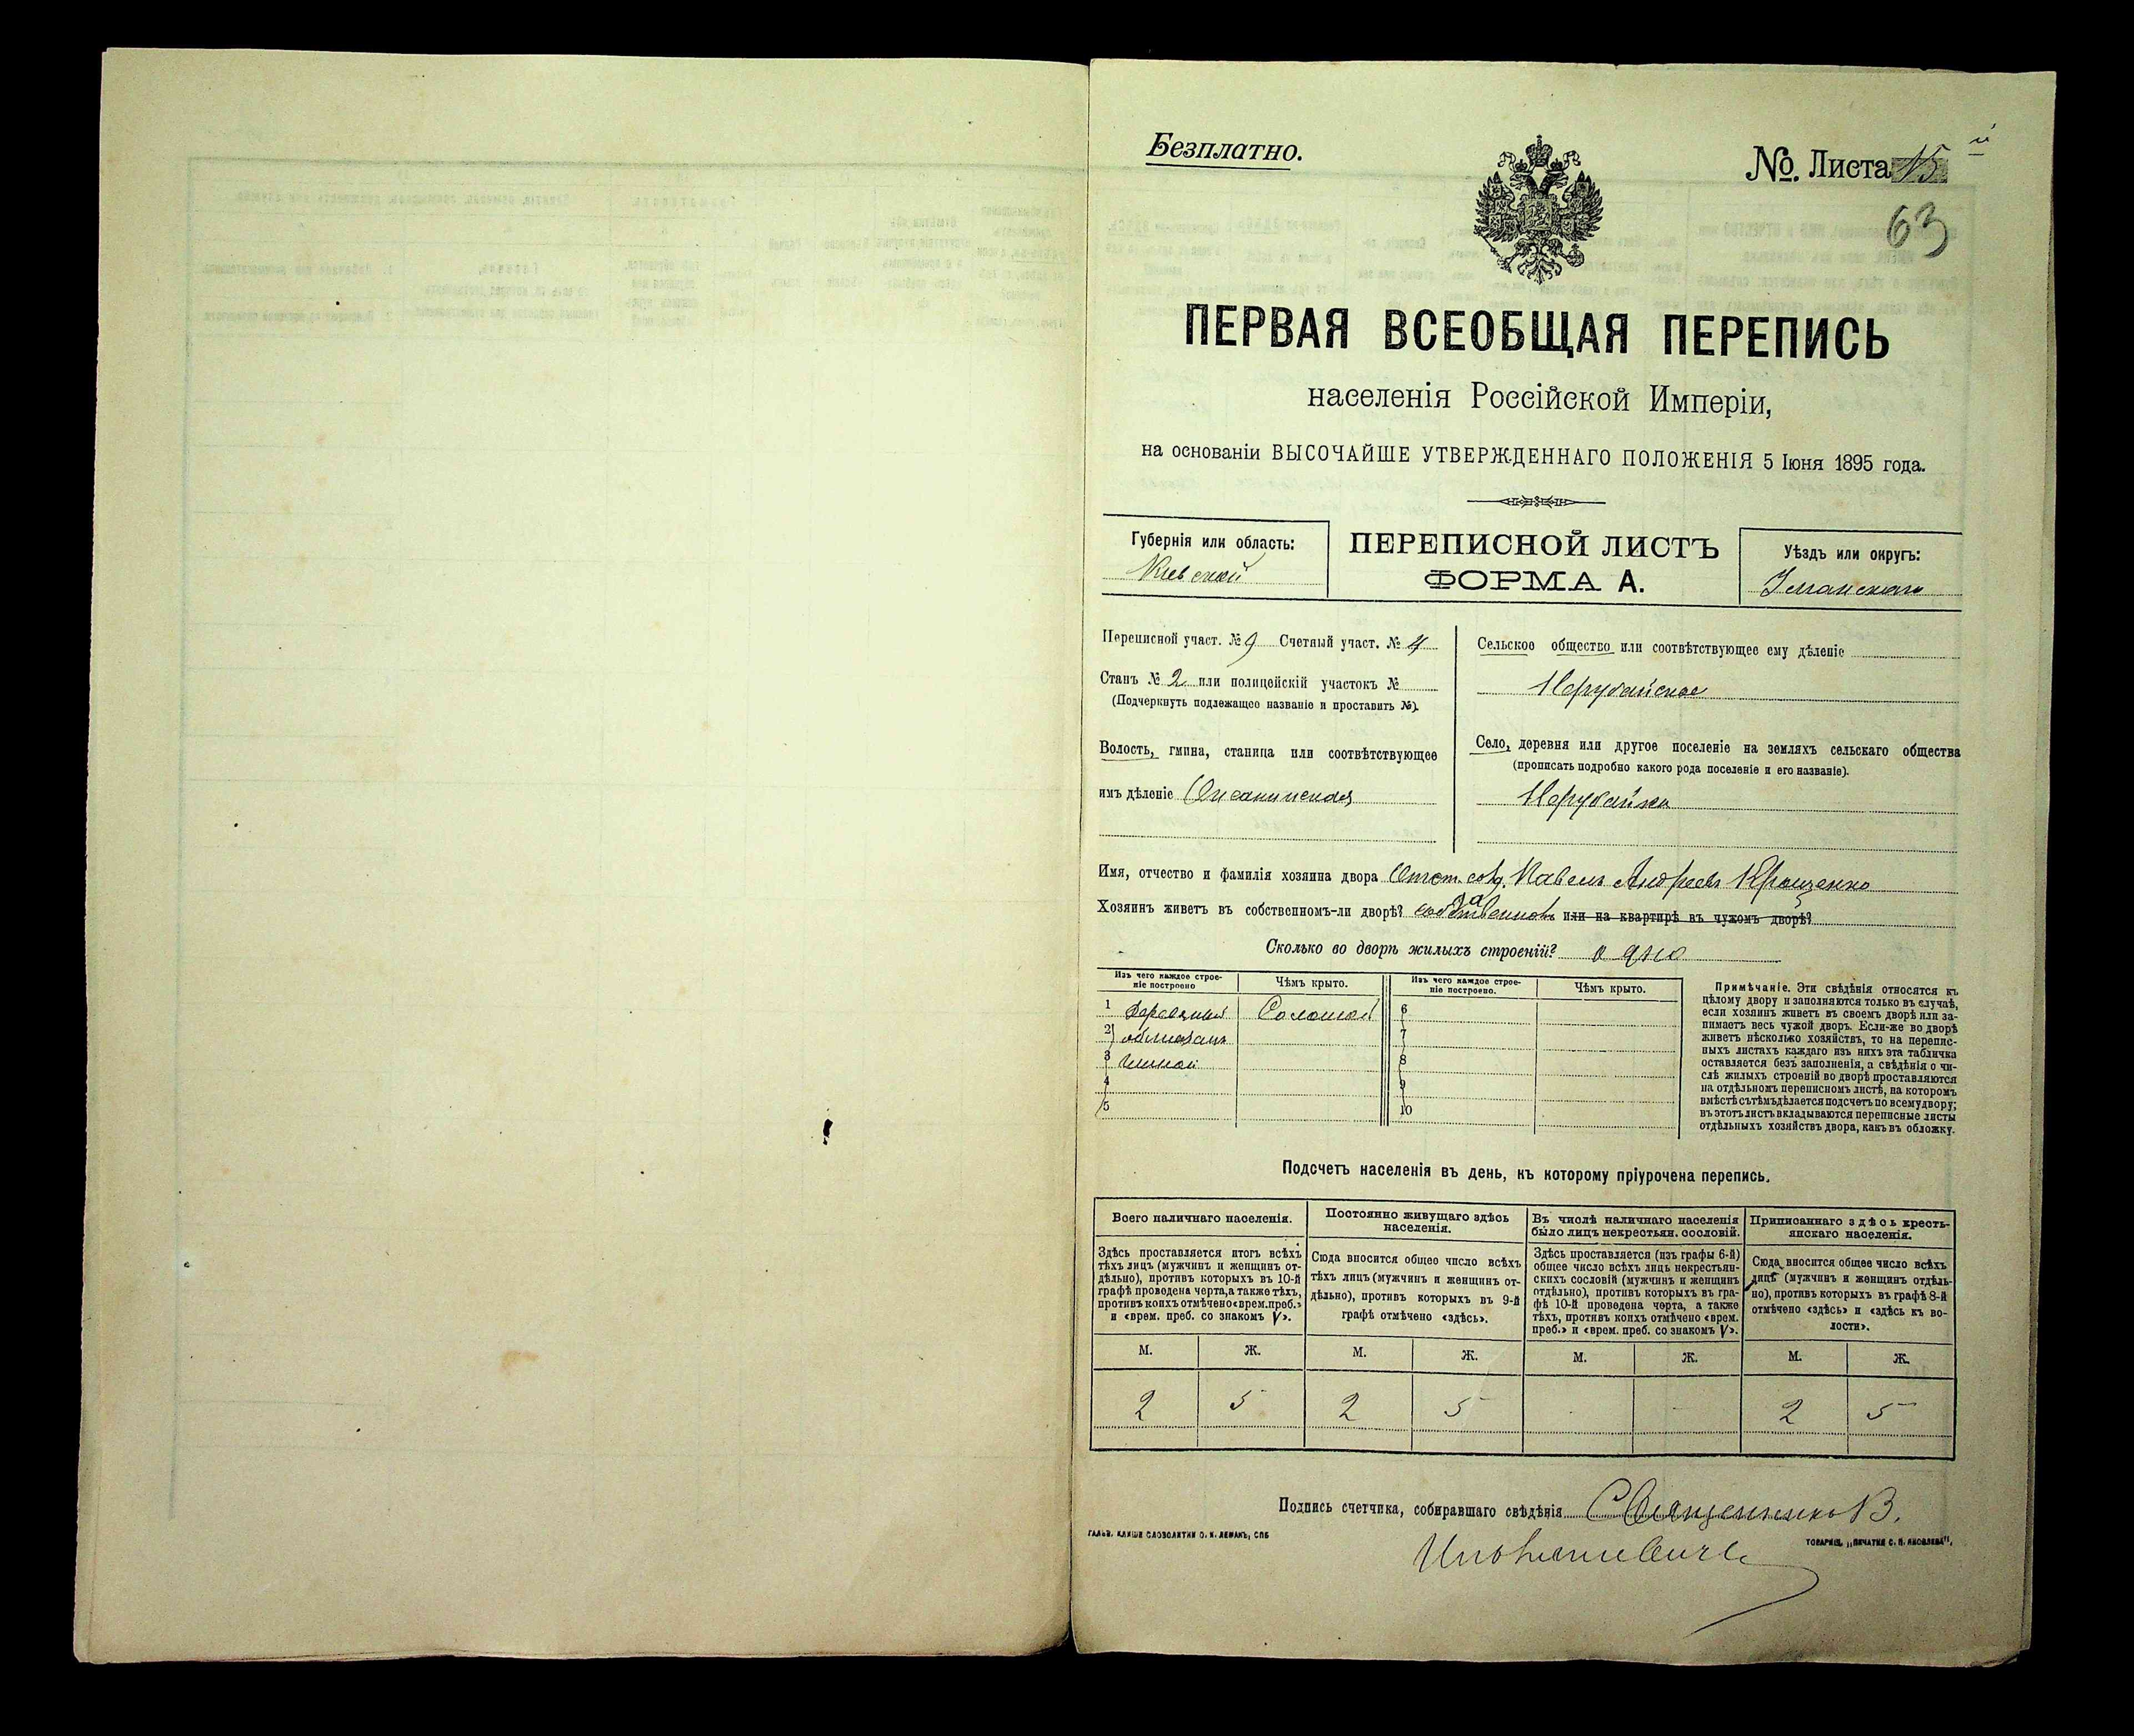 Безплатно.
№. Листа 15 й
63
ПЕРВАЯ ВСЕОБЩАЯ ПЕРЕПИСЬ
населенія Россійской Имперіи,
на основаніи ВЫСОЧАЙШЕ УТВЕРЖДЕННАГО ПОЛОЖЕНІЯ 5 Іюня 1895 года.
Губернія или область:
Кіевской
ПЕРЕПИСНОЙ ЛИСТЪ
ФОРМА А.
Уѣздъ или округъ:
Уманскаго
Переписной участ. № 9 Счетный участ. № 4
Станъ № 2 или полицейскій участокъ №
(Подчеркнуть подлежащее названіе и проставить №).
Волость, гмина, станица или соотвѣтствующее
имъ дѣленіе Оксанинская
Сельское общество или соотвѣтствующее ему дѣленіе
Нерубайское
Село, деревня или другое поселеніе на земляхъ сельскаго общества
(прописать подробно какого рода поселеніе и его названіе).
Нерубайка
Имя, отчество и фамилія хозяина двора Павелъ Андреевъ
Хозяинъ живетъ въ собственномъ-ли дворѣ? или на квартирѣ въ чужомъ дворѣ?
Сколько во дворѣ жилыхъ строеній? одно
Изъ чего каждое строе-
ніе построено
Чѣмъ крыто.
Изъ чего каждое строе-
ніе построено.
Чѣмъ крыто.
1 Соломой 6
2 7
3 глиной 8
4 9
5 10
Примѣчаніе. Эти свѣдѣнія относятся къ
цѣлому двору и заполняются только въ случаѣ,
если хозяинъ живетъ въ своемъ дворѣ или за-
нимаетъ весь чужой дворъ. Если-же во дворѣ
живетъ нѣсколько хозяйствъ, то на перепис-
ныхъ листахъ каждаго изъ нихъ эта табличка
оставляется безъ заполненія, а свѣдѣнія о чи-
слѣ жилыхъ строеній во дворѣ проставляются
на отдѣльномъ переписномъ листѣ, на которомъ
вмѣстѣ съ тѣмъ дѣлается подсчетъ по всему двору;
въ этотъ листъ вкладываются переписные листы
отдѣльныхъ хозяйствъ двора, какъ въ обложку.
Подсчетъ населенія въ день, къ которому пріурочена перепись.
Всего наличнаго населенія.
Здѣсь проставляется итогъ всѣхъ
тѣхъ лицъ (мужчинъ и женщинъ от-
дѣльно), противъ которыхъ въ 10-й
графѣ проведена черта, а также тѣхъ,
противъ коихъ отмѣчено «врем. преб.»
и «врем. преб. со знакомъ V».
Постоянно живущаго здѣсь
населенія.
Сюда вносится общее число всѣхъ
тѣхъ лицъ (мужчинъ и женщинъ от-
дѣльно), противъ которыхъ въ 9-й
графѣ отмѣчено «здѣсь».
Въ числѣ наличнаго населенія
было лицъ некрестьян. сословій.
Здѣсь проставляется (изъ графы 6-й)
общее число всѣхъ лицъ некрестьян-
скихъ сословій (мужчинъ и женщинъ
отдѣльно), противъ которыхъ въ гра-
фѣ 10-й проведена черта, а также
тѣхъ, противъ коихъ отмѣчено «врем.
преб.» и «врем. преб. со знакомъ V».
Приписаннаго здѣсь кресть-
янскаго населенія.
Сюда вносится общее число всѣхъ
лицъ (мужчинъ и женщинъ отдѣль-
но), противъ которыхъ въ графѣ 8-й
отмѣчено «здѣсь» и «здѣсь къ во-
лости».
М. Ж. М. Ж. М. Ж. М. Ж.
2 5 2 5 - - 2 5
Подпись счетчика, собиравшаго свѣдѣнія Священникъ В.
ГАЛЬВ. КЛИШЕ СЛОВОЛИТНИ О. И. ЛЕМАНЪ, СПБ
ТОВАРИЩ. „ПЕЧАТНЯ С. П. ЯКОВЛЕВА",